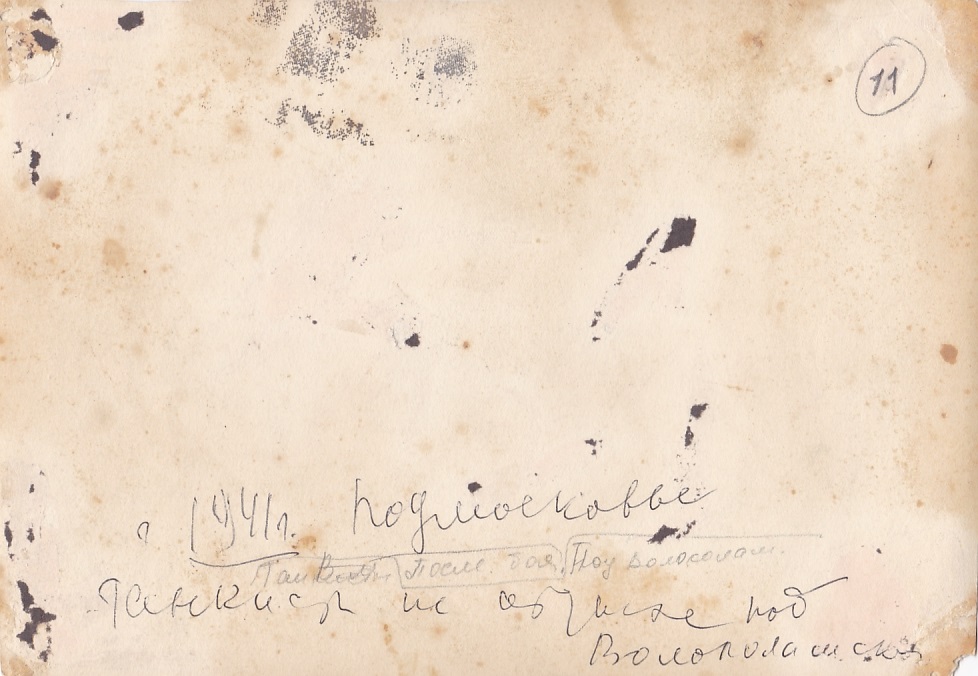 11
1941г. Подмосковье
Танкисты после боя Под Волоколам.
Танкисты на отдыхе под
Волоколамском